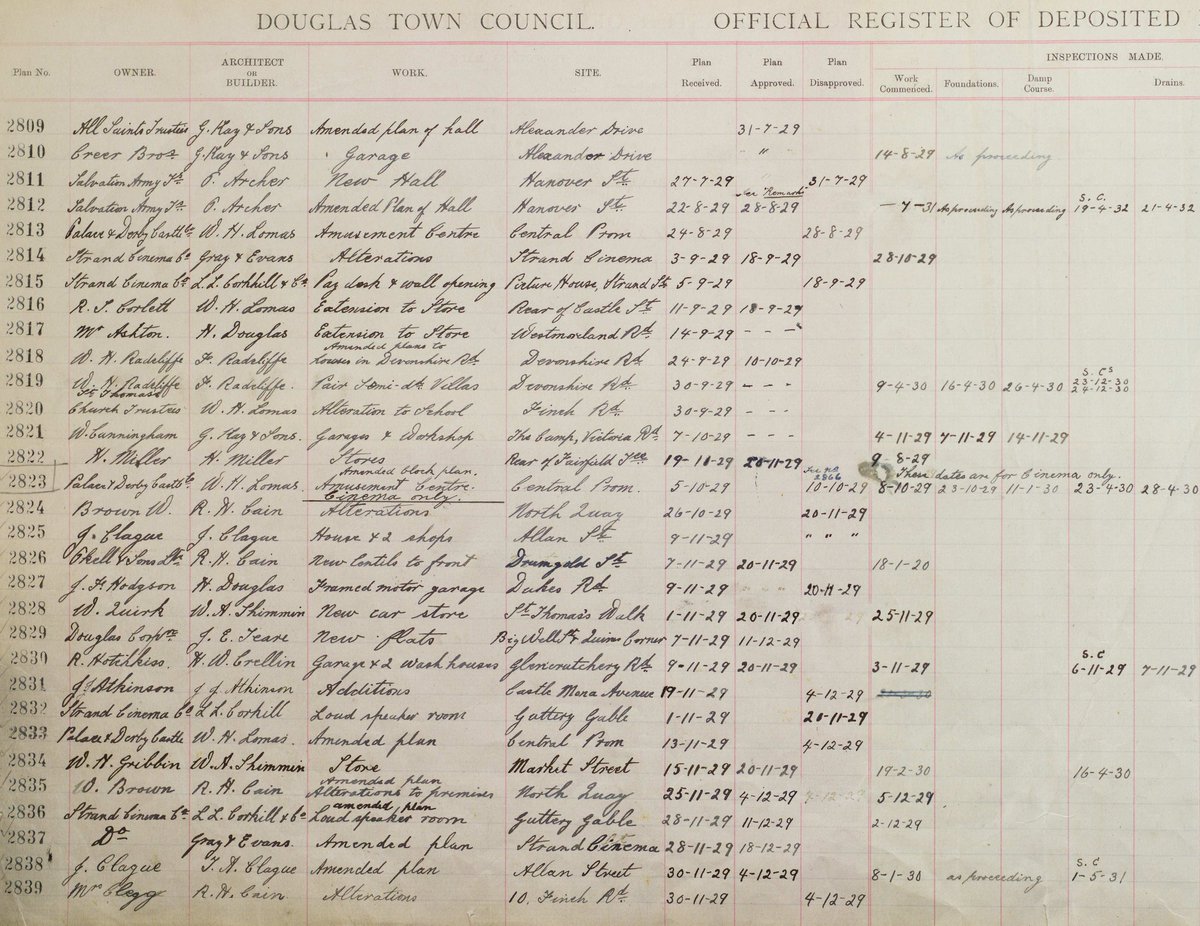 DOUGLAS TOWN COUNCIL. OFFICIAL REGISTER OF DEPOSITED
Plan No. OWNER. ARCHITECT OR BUILDER. WORK. SITE. Plan Received. Plan Approved. Plan Disapproved. INSPECTIONS MADE.
Work Commenced. Foundations. Damp Course. Drains.
2809 All Saints Trustees G. Kay & Sons Amended plan of hall Alexander Drive 31-7-29
2810 Creer Bros G. Kay & Sons Garage Alexander Drive " 14-8-29 As proceeding
2811 Salvation Army Trs P. Archer New Hall Hanover St. 27-7-29 31-7-29
See "Remarks" S. C.
2812 Salvation Army Trs P. Archer Amended Plan of Hall Hanover St. 22-8-29 28-8-29 — 7-31 As proceeding As proceeding 19-4-32 21-4-32
2813 Palace & Derby Castle Co W. H. Lomas Amusement Centre Central Prom 24-8-29 28-8-29
2814 Strand Cinema Co Gray & Evans Alterations Strand Cinema 3-9-29 18-9-29 28-10-29
2815 Strand Cinema Co L. L. Corkhill & Co. Pay desk & wall opening Picture House, Strand St. 5-9-29 18-9-29
2816 R. S. Corlett W. H. Lomas Extension to Store Rear of Castle St. 11-9-29 18-9-29
2817 Mr Ashton. H. Douglas Extension to Store Westmorland Rd. 14-9-29 - - -
Amended plans to
2818 W. H. Radcliffe F. Radcliffe houses in Devonshire Rd. Devonshire Rd 24-9-29 10-10-29
S. Cs
23-12-30
2819 W. H. Radcliffe F. Radcliffe. Pair Semi-dt. Villas Devonshire Rd. 30-9-29 - - - 9-4-30 16-4-30 26-4-30 24-12-30
St Thomas's
2820 Church Trustees W. H. Lomas Alteration to School Finch Rd. 30-9-29 - - -
2821 W. Cunningham G. Kay & Sons. Garages & Workshop The Camp, Victoria Rd. 7-10-29 - - - 4-11-29 7-11-29 14-11-29
2822 H. Miller H. Miller Stores Rear of Fairfield Tce 19-10-29 20-11-29 9-8-29
Amended block plan. See No 2866 These dates are for Cinema only.
2823 Palace & Derby Castle Co W. H. Lomas. Amusement Centre. Central Prom. 5-10-29 10-10-29 8-10-29 23-10-29 11-1-30 23-4-30 28-4-30
Cinema only.
2824 Brown W. R. H. Cain Alterations North Quay 26-10-29 20-11-29
2825 J. Clague J. Clague House & 2 shops Allan St. 9-11-29 " " "
2826 Okell & Sons Ld. R. H. Cain New lentils to front Drumgold St. 7-11-29 20-11-29 18-1-20
2827 J. F. Hodgson H. Douglas Framed motor garage Dukes Rd. 9-11-29 20-11-29
2828 W. Quirk W. A. Shimmin New car store St. Thomas's Walk 1-11-29 20-11-29 25-11-29
2829 Douglas Corpn J. E. Teare New flats Big Well St & Quines Corner 7-11-29 11-12-29
S. C
2830 R. Hotchkiss. H. W. Crellin Garage & 2 wash houses Glencrutchery Rd. 9-11-29 20-11-29 3-11-29 6-11-29 7-11-29
2831 J. Atkinson J. J. Atkinson Additions Castle Mona Avenue 19-11-29 4-12-29
2832 Strand Cinema Co L. L. Corkhill Loud speaker room Guttery Gable 1-11-29 20-11-29
2833 Palace & Derby Castle W. H. Lomas. Amended plan Central Prom 13-11-29 4-12-29
2834 W. H. Gribbin W. A. Shimmin Store Market Street 15-11-29 20-11-29 19-2-30 16-4-30
Amended plan
2835 W. Brown R. H. Cain Alterations to premises North Quay 25-11-29 4-12-29 5-12-29
amended plan
2836 Strand Cinema Co L. L. Corkhill & Co Loud speaker room Guttery Gable 28-11-29 11-12-29 2-12-29
2837 Do Gray & Evans. Amended plan Strand Cinema 28-11-29 18-12-29
S. C
2838 J. Clague T. A. Clague Amended plan Allan Street 30-11-29 4-12-29 8-1-30 as proceeding 1-5-31
2839 Mr Clegg R. H. Cain Alterations 10. Finch Rd. 30-11-29 4-12-29